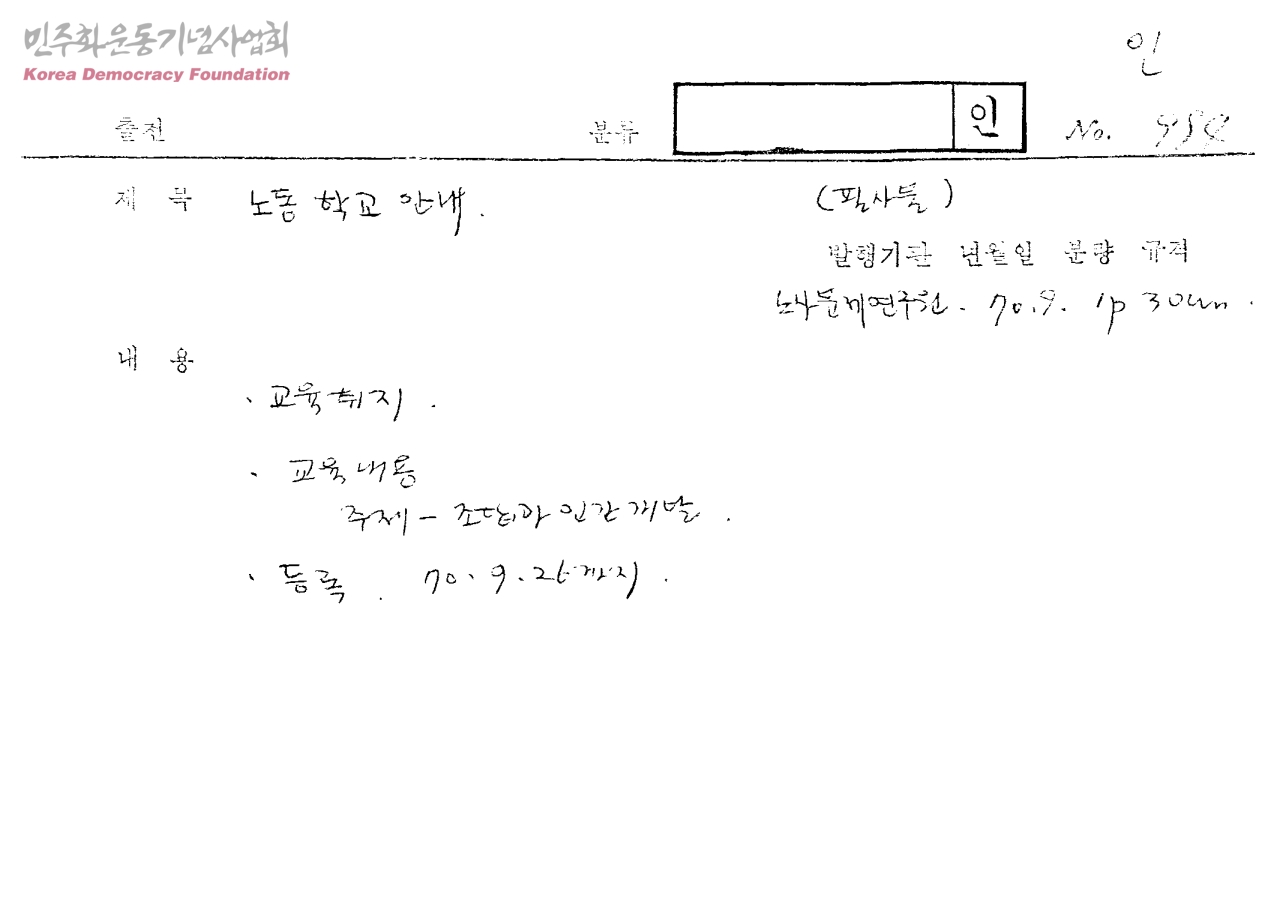 민주화운동기념사업회
Korea Democracy Foundation
인
출전 분류 인 No.
제 목 노동 학교 안내. (필사물)
발행기관 년월일 분량 규격
노사문제연구원. 70.9. 1p 30cm.
내 용
· 교육취지.
· 교육내용
주제 - 조단과 인간개발.
· 등록. 70.9.26까지.